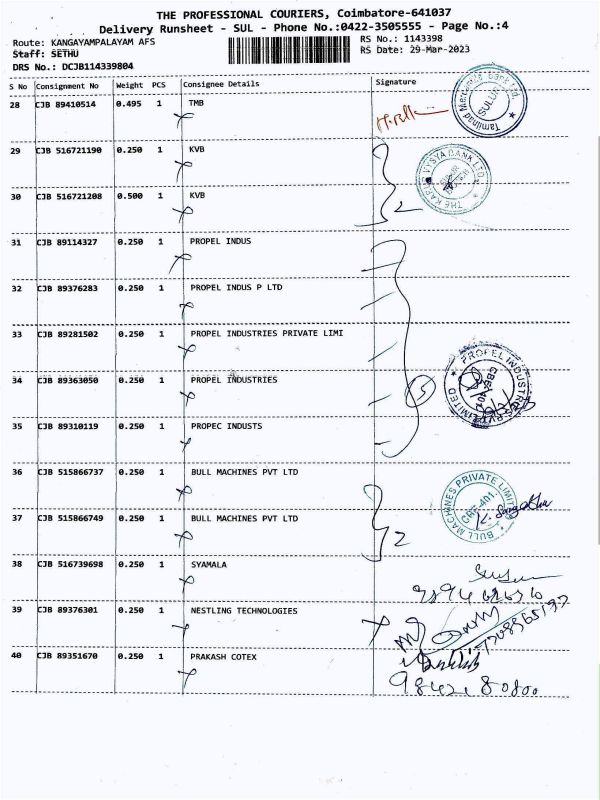 THE PROFESSIONAL COURIERS, Coimbatore-641037
Delivery Runsheet - SUL - Phone No.:0422-3505555 - Page No.:4
Route: KANGAYAMPALAYAM AFS
RS No.: 1143398
Staff: SETHU
RS Date: 29-Mar-2023
DRS No.: DCJB114339804
S No Consignment No Weight PCS Consignee Details Signature
28 CJB 89410514 0.495 1 TMB
Tamilnad Mercantile Bank Ltd
SULUR
29 CJB 516721190 0.250 1 KVB
THE KARUR VYSYA BANK LTD
30 CJB 516721208 0.500 1 KVB
2
31 CJB 89114327 0.250 1 PROPEL INDUS
32 CJB 89376283 0.250 1 PROPEL INDUS P LTD
33 CJB 89281502 0.250 1 PROPEL INDUSTRIES PRIVATE LIMI
34 CJB 89363050 0.250 1 PROPEL INDUSTRIES
5
PROPEL INDUSTRIES PVT LIMITED
35 CJB 89310119 0.250 1 PROPEC INDUSTS
36 CJB 515866737 0.250 1 BULL MACHINES PVT LTD
BULL MACHINES PRIVATE LIMITED
CBE-401
37 CJB 515866749 0.250 1 BULL MACHINES PVT LTD
2
38 CJB 516739698 0.250 1 SYAMALA
39 CJB 89376301 0.250 1 NESTLING TECHNOLOGIES
40 CJB 89351670 0.250 1 PRAKASH COTEX